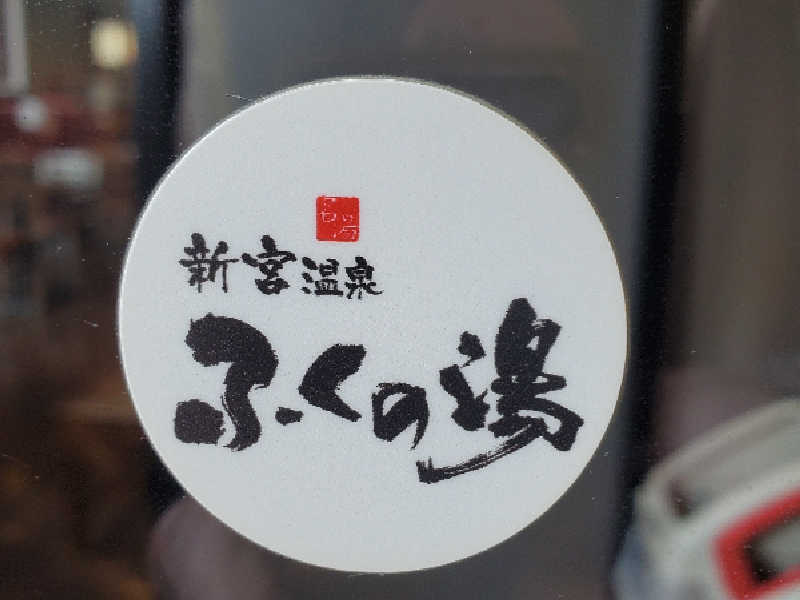 新宮温泉
ふくの湯